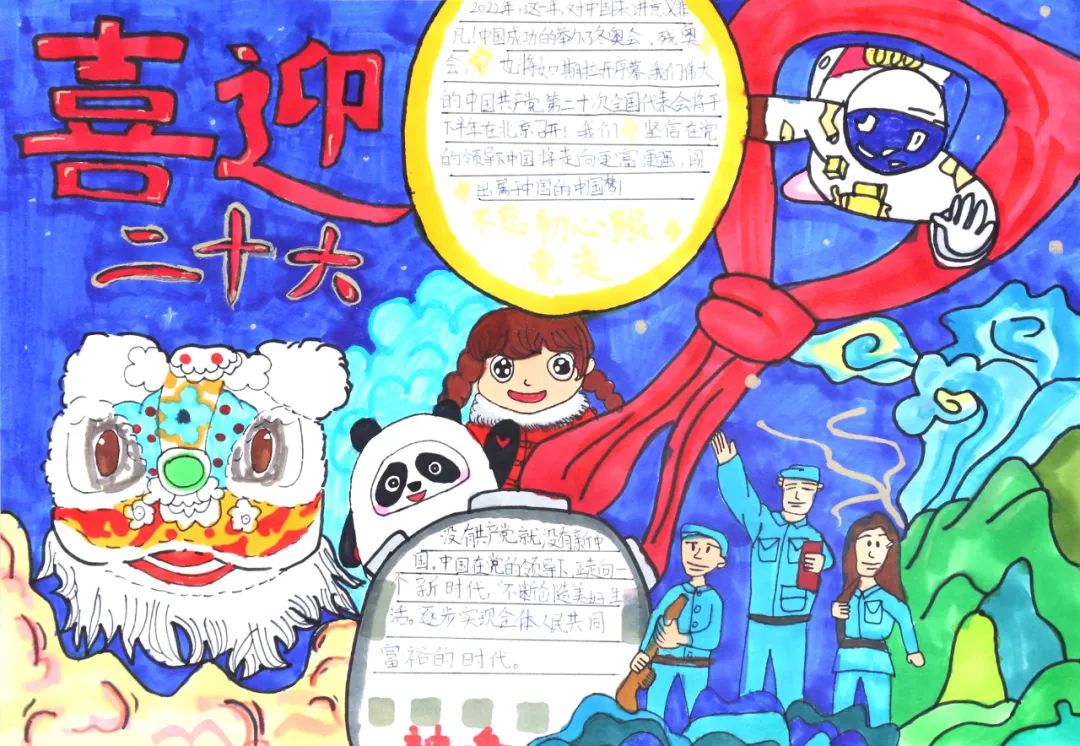 喜迎
二十大
2022年,这一年,对中国来讲意义非
凡!中国成功的举办了冬奥会、残奥
会, 也将如斯拉开序幕,我们伟大
的中国共产党第二十次全国代表会将于
下半年在北京召开!我们 坚信在党
的领导下中国将走向更富更强,闯
出属于中国的中国梦!
不忘初心跟
党走
没有共产党就没有新中
国,中国在党的领导下,正走向一
个新时代,不断创造美好生
活。逐步实现全体人民共同
富裕的时代。